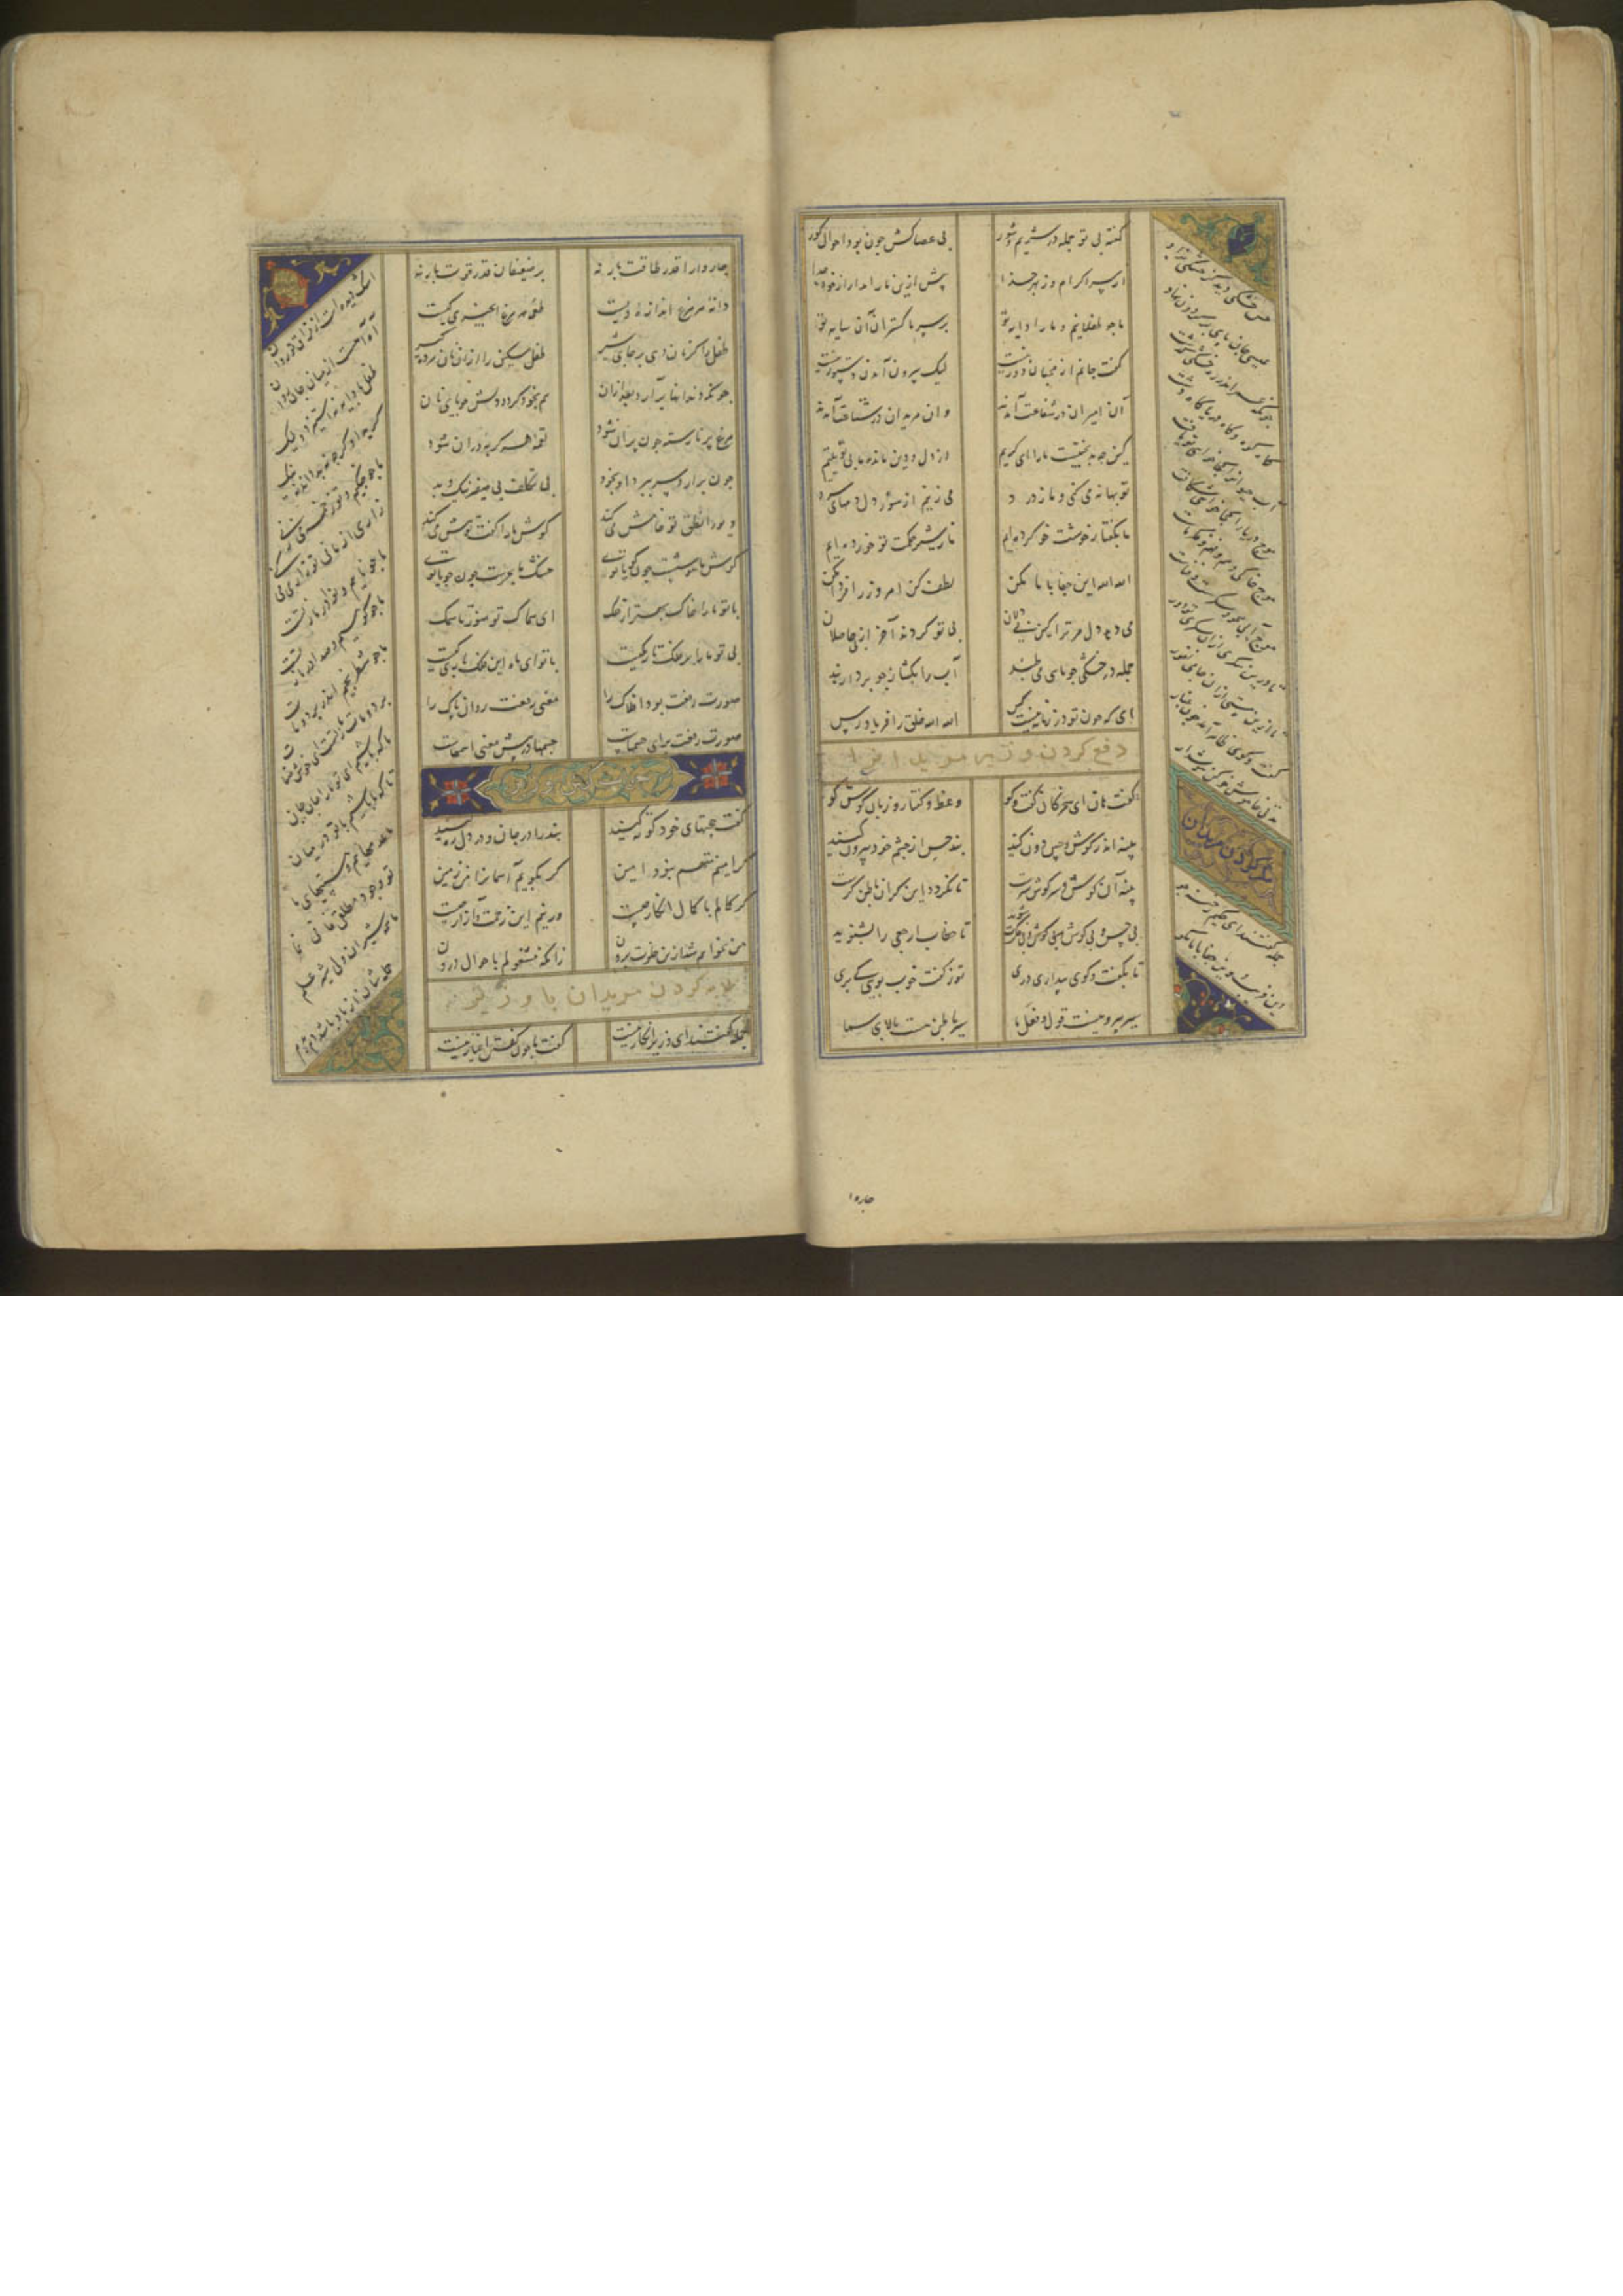 گفته بی تو جمله در شریم و شور بی عصاکش چون بود احوال کور
از سر اکرام و ز بهر خدا پیش ازین ما را مدار از خود جدا
ما چو طفلانیم و ما را دایه تو بر سر ما گستران آن سایه تو
گفت جانم از محبان دور نیست لیک بیرون آمدن دستور نیست
آن امیران در شفاعت آمدند وان مریدان در شناعت آمدند
کین چه بدبختیست ما را ای کریم از دل و دین مانده ما بی تو یتیم
تو بهانه می کنی و ما ز درد می زنیم از سوز دل دمهای سرد
ما بگفتار خوشت خو کرده ایم ما ز شیر حکمت تو خورده ایم
الله الله این جفا با ما مکن لطف کن امروز را فردا مکن
می دهد دل مر ترا کین بی دلان بی تو گردند آخر از بی حاصلان
جمله در خشکی چو ماهی می طپند آب را بگشا ز جو بردار بند
ای که چون تو در زمانه نیست کس الله الله خلق را فریاد رس
دفع کردن وزیر مریدانرا
گفت هان ای سخرگان گفت و گو وعظ و گفتار و زبان گوش جو
پنبه اندر گوش حس دون کنید بند حس از چشم خود بیرون کنید
پنبه آن گوش سر گوش سرست تا نگردد این کران باطن کرست
بی حس و بی گوش و بی فکرت شوید تا خطاب ارجعی را بشنوید
تا بگفت و گوی بیداری دری تو ز گفت خواب بویی کی بری
سیر بیرونیست قول و فعل ما سیر باطن هست بالای سما
حس خشکی دید کز خشکی بزاد
عیسی جان پای بر دریا نهاد
گاه کوه و گاه دریا گاه دشت
مکر کردن مریدان
جمله گفتند ای حکیم رخنه جو
این فریب و این جفا با ما مگو
چاروا
چاروا را قدر طاقت بار نه بر ضعیفان قدر قوت بار نه
دانه هر مرغ اندازه ویست طعمه هر مرغ انجیری کیست
طفل را گر نان دهی بر جای شیر طفل مسکین را از آن نان مرده گیر
چونکه دندانها برآرد بعد از آن هم بخود گردد دلش جویای نان
مرغ پر نارسته چون پران شود لقمه هر گربه دران شود
چون برآرد پر بپرد او بخود بی تکلف بی صفیر نیک و بد
دیو را نطق تو خامش می کند گوش ما را گفت تو هش می کند
گوش ما هوشست چون گویا توی خشک ما بحرست چون دریا توی
با تو ما را خاک بهتر از فلک ای سماک از تو منور تا سمک
بی تو ما را بر فلک تاریکیست با تو ای ماه این فلک باری کیست
صورت رفعت بود افلاک را معنی رفعت روان پاک را
صورت رفعت برای جسمهاست جسمها در پیش معنی اسمهاست
گفت حجتهای خود کوته کنید پند را در جان و در دل ره کنید
گر امینم متهم نبود امین گر بگویم آسمانرا من زمین
گر کمالم با کمال انکار چیست ور نیم این زحمت و آزار چیست
من نخواهم شد ازین خلوت برون زانکه مشغولم باحوال درون
لابه کردن مریدان با وزیر
جمله گفتند ای وزیر انکار نیست گفت ما چون گفتن اغیار نیست
اشک دیده است از فراق تو دوان
آه آهست از میان جان روان
طفل با دایه نه استیزد ولیک
گرید او گرچه نه بد داند نه نیک
ما چو چنگیم و تو زخمه می زنی
زاری از ما نی تو زاری می کنی
ما چو ناییم و نوا در ما ز تست
ما چو کوهیم و صدا در ما ز تست
ما چو شطرنجیم اندر برد و مات
برد و مات ما ز تست ای خوش صفات
ما که باشیم ای تو ما را جان جان
تا که ما باشیم با تو در میان
ما عدمهاییم و هستیهای ما
تو وجود مطلقی فانی نما
ما همه شیران ولی شیر علم
حمله شان از باد باشد دم بدم